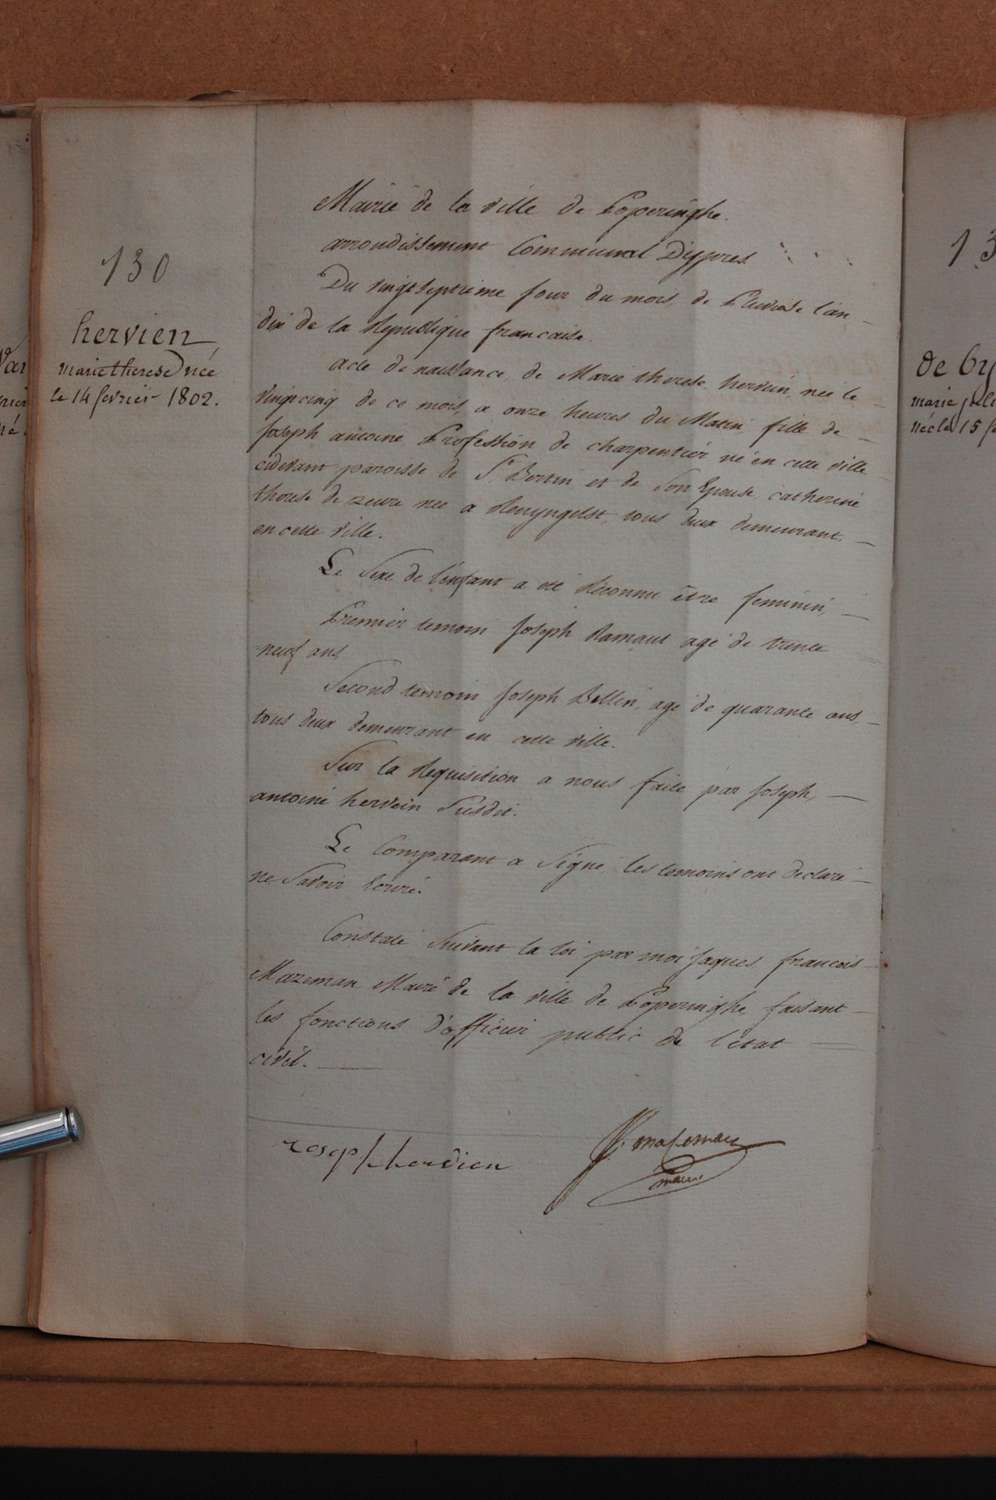 130
hervien
marie therese née
le 14 fevrier 1802.
Mairie de la ville de Poperinghe.
arrondissement Communal D'ypres
Du vingt septieme jour du mois de Pluviose l'an
dix de la Republique francaise.
Acte de naissance de Marie therese hervein, née le
vingt cinq de ce mois, a onze heures du Matin fille de
Joseph antoine Profession de charpentier né en cette ville
cidevant paroisse de St. Bertin et de Son Epouse catherine
therese de zeure nee a Renyngelst, tous deux demeurant
en cette ville.
Le Sexe de l'enfant a eté Reconnu être feminin
Premier temoin Joseph Ramaut agé de trente
neuf ans
Second temoin Joseph Bellin, agé de quarante ans
tous deux demeurant en cette ville.
Sur la Requisition a nous faite par Joseph
antoine hervein Susdit.
Le Comparant a Signé, les temoins ont declaré
ne Savoir Ecrire.
Constaté Suivant la loi par moi Jaques francois
Mazeman Maire de la ville de Poperinghe faisant
les fonctions D'officier public de l'etat
civil.
Joseph hervien
mazeman
maire
13
de
marie
née le 15